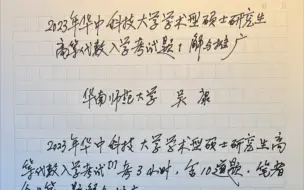 2023年华中科技大学学术型硕士研究生
高等代数入学考试题:解与推广
华南师范大学 吴
2023年华中科技大学学术型硕士研究生高
等代数入学考试[1]卷3小时,含10道题,笔者